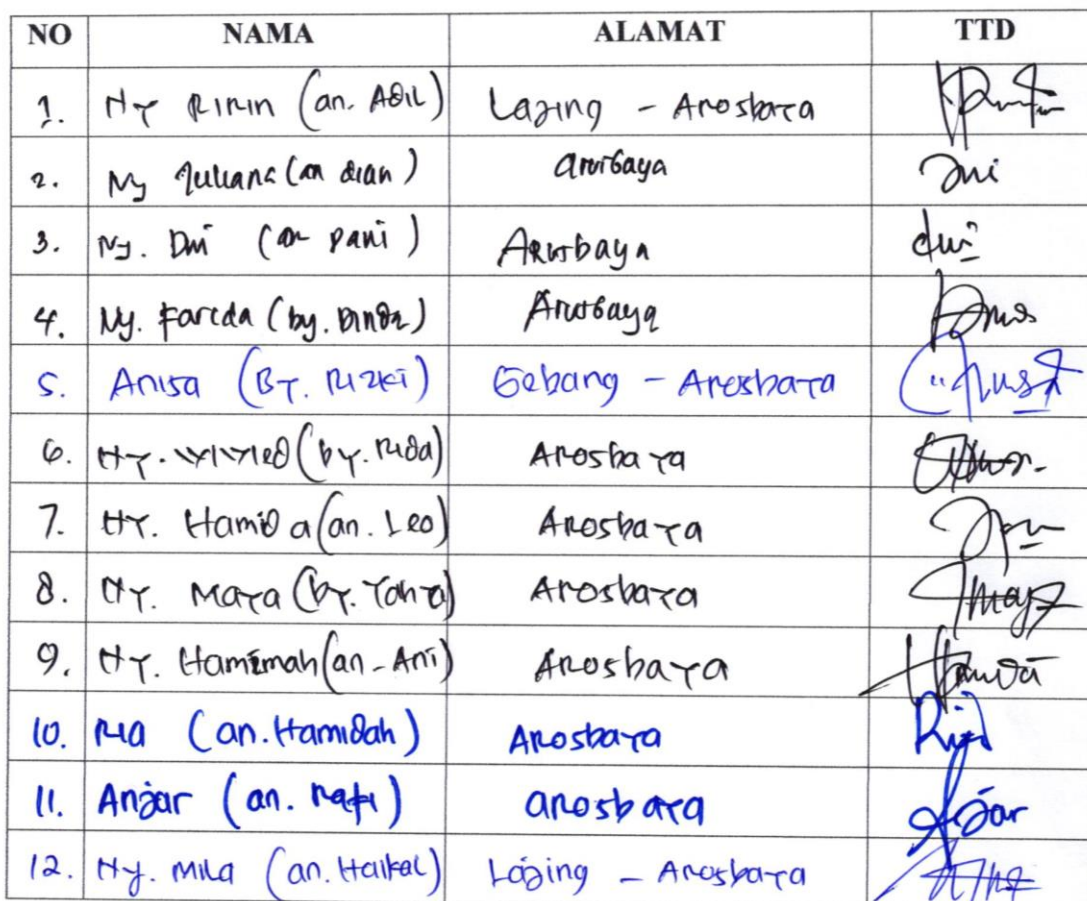 NO NAMA ALAMAT TTD
1. Ny Ririn (an. Adil) Lajing - Arosbaya
2. Ny Juliana (an dian) arosbaya
3. Ny. Dwi (an pani) Arosbaya dwi
4. Ny. Farida (by. Dinda) Arosbaya
5. Anisa (By. Rizki) Gebang - Arosbaya
6. Ny. (by. Rida) Arosbaya
7. Ny. Hamida (an. Leo) Arosbaya
8. Ny. Maya (by. Yahya) Arosbaya
9. Ny. Hamimah (an. Ani) Arosbaya
10. Ria (an. Hamidah) Arosbaya Ria
11. Anjar (an. Rafi) arosbaya Anjar
12. Ny. Mila (an. Haikal) Lajing - Arosbaya